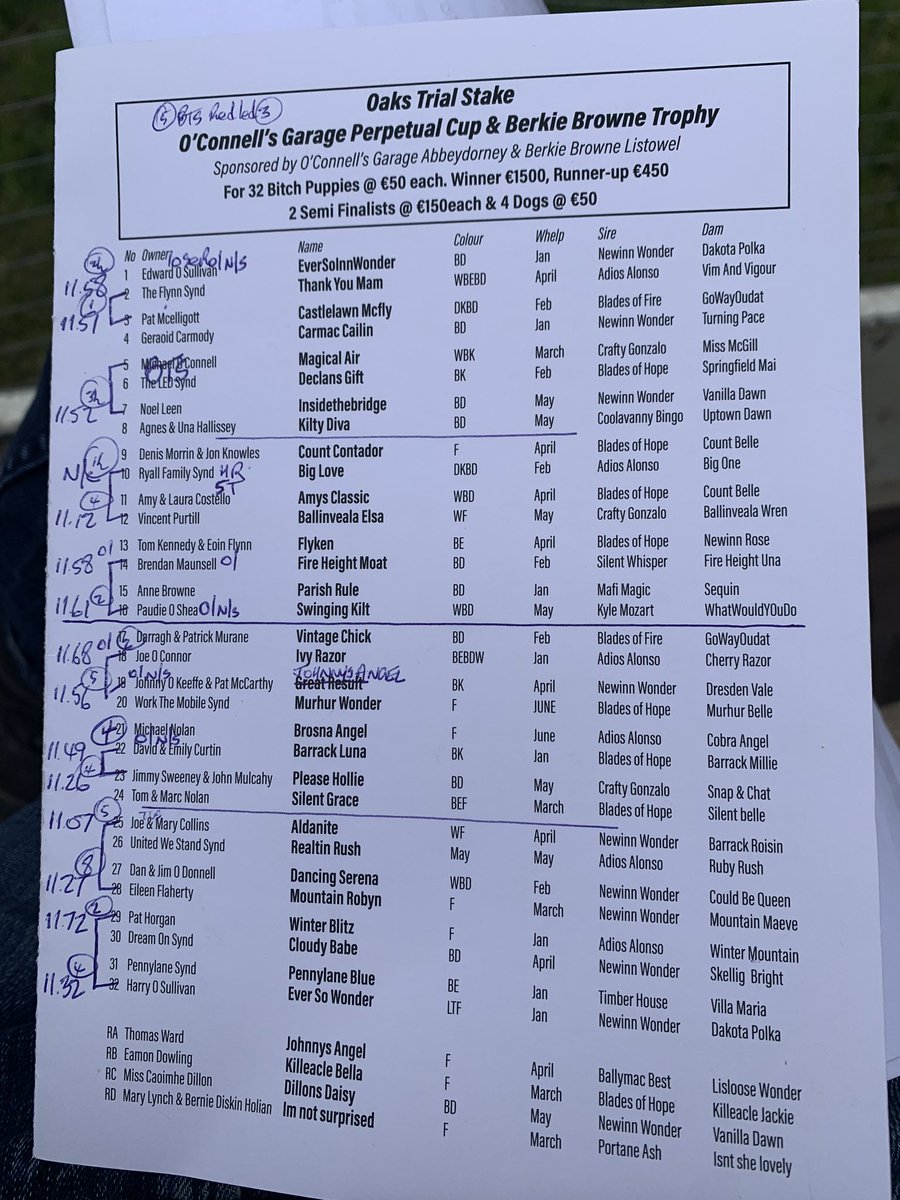 Oaks Trial Stake
O'Connell's Garage Perpetual Cup & Berkie Browne Trophy
Sponsored by O'Connell's Garage Abbeydorney & Berkie Browne Listowel
For 32 Bitch Puppies @ €50 each. Winner €1500, Runner-up €450
2 Semi Finalists @ €150each & 4 Dogs @ €50
No Owner Name Colour Whelp Sire Dam
1 Edward O Sullivan EverSoInnWonder BD Jan Newinn Wonder Dakota Polka
11.58 2 The Flynn Synd Thank You Mam WBEBD April Adios Alonso Vim And Vigour
11.57 3 Pat Mcelligott Castlelawn Mcfly DKBD Feb Blades of Fire GoWayOudat
4 Geraoid Carmody Carmac Cailin BD Jan Newinn Wonder Turning Pace
5 Michael O Connell Magical Air WBK March Crafty Gonzalo Miss McGill
6 The LED Synd Declans Gift BK Feb Blades of Hope Springfield Mai
11.52 7 Noel Leen Insidethebridge BD May Newinn Wonder Vanilla Dawn
8 Agnes & Una Hallissey Kilty Diva BD May Coolavanny Bingo Uptown Dawn
9 Denis Morrin & Jon Knowles Count Contador F April Blades of Hope Count Belle
10 Ryall Family Synd Big Love DKBD Feb Adios Alonso Big One
11 Amy & Laura Costello Amys Classic WBD April Blades of Hope Count Belle
11.12 12 Vincent Purtill Ballinveala Elsa WF May Crafty Gonzalo Ballinveala Wren
13 Tom Kennedy & Eoin Flynn Flyken BE April Blades of Hope Newinn Rose
11.58 14 Brendan Maunsell Fire Height Moat BD Feb Silent Whisper Fire Height Una
15 Anne Browne Parish Rule BD Jan Mafi Magic Sequin
11.61 16 Paudie O Shea O/N/S Swinging Kilt WBD May Kyle Mozart WhatWouldYOuDo
17 Darragh & Patrick Murane Vintage Chick BD Feb Blades of Fire GoWayOudat
11.68 18 Joe O Connor Ivy Razor BEBDW Jan Adios Alonso Cherry Razor
O/N/S JOHNNYS ANGEL
11.56 19 Johnny O Keeffe & Pat McCarthy Great Result BK April Newinn Wonder Dresden Vale
20 Work The Mobile Synd Murhur Wonder F JUNE Blades of Hope Murhur Belle
21 Michael Nolan Brosna Angel F June Adios Alonso Cobra Angel
O/N/S
11.49 22 David & Emily Curtin Barrack Luna BK Jan Blades of Hope Barrack Millie
11.26 23 Jimmy Sweeney & John Mulcahy Please Hollie BD May Crafty Gonzalo Snap & Chat
24 Tom & Marc Nolan Silent Grace BEF March Blades of Hope Silent belle
11.07 5 25 Joe & Mary Collins Aldanite WF April Newinn Wonder Barrack Roisin
26 United We Stand Synd Realtin Rush May May Adios Alonso Ruby Rush
27 Dan & Jim O Donnell Dancing Serena WBD Feb Newinn Wonder Could Be Queen
11.27 8 28 Eileen Flaherty Mountain Robyn F March Newinn Wonder Mountain Maeve
11.72 2 29 Pat Horgan Winter Blitz F Jan Adios Alonso Winter Mountain
30 Dream On Synd Cloudy Babe BD April Newinn Wonder Skellig Bright
31 Pennylane Synd Pennylane Blue BE Jan Timber House Villa Maria
11.32 4 32 Harry O Sullivan Ever So Wonder LTF Jan Newinn Wonder Dakota Polka
RA Thomas Ward Johnnys Angel F April Ballymac Best Lisloose Wonder
RB Eamon Dowling Killeacle Bella F March Blades of Hope Killeacle Jackie
RC Miss Caoimhe Dillon Dillons Daisy BD May Newinn Wonder Vanilla Dawn
RD Mary Lynch & Bernie Diskin Holian Im not surprised F March Portane Ash Isnt she lovely